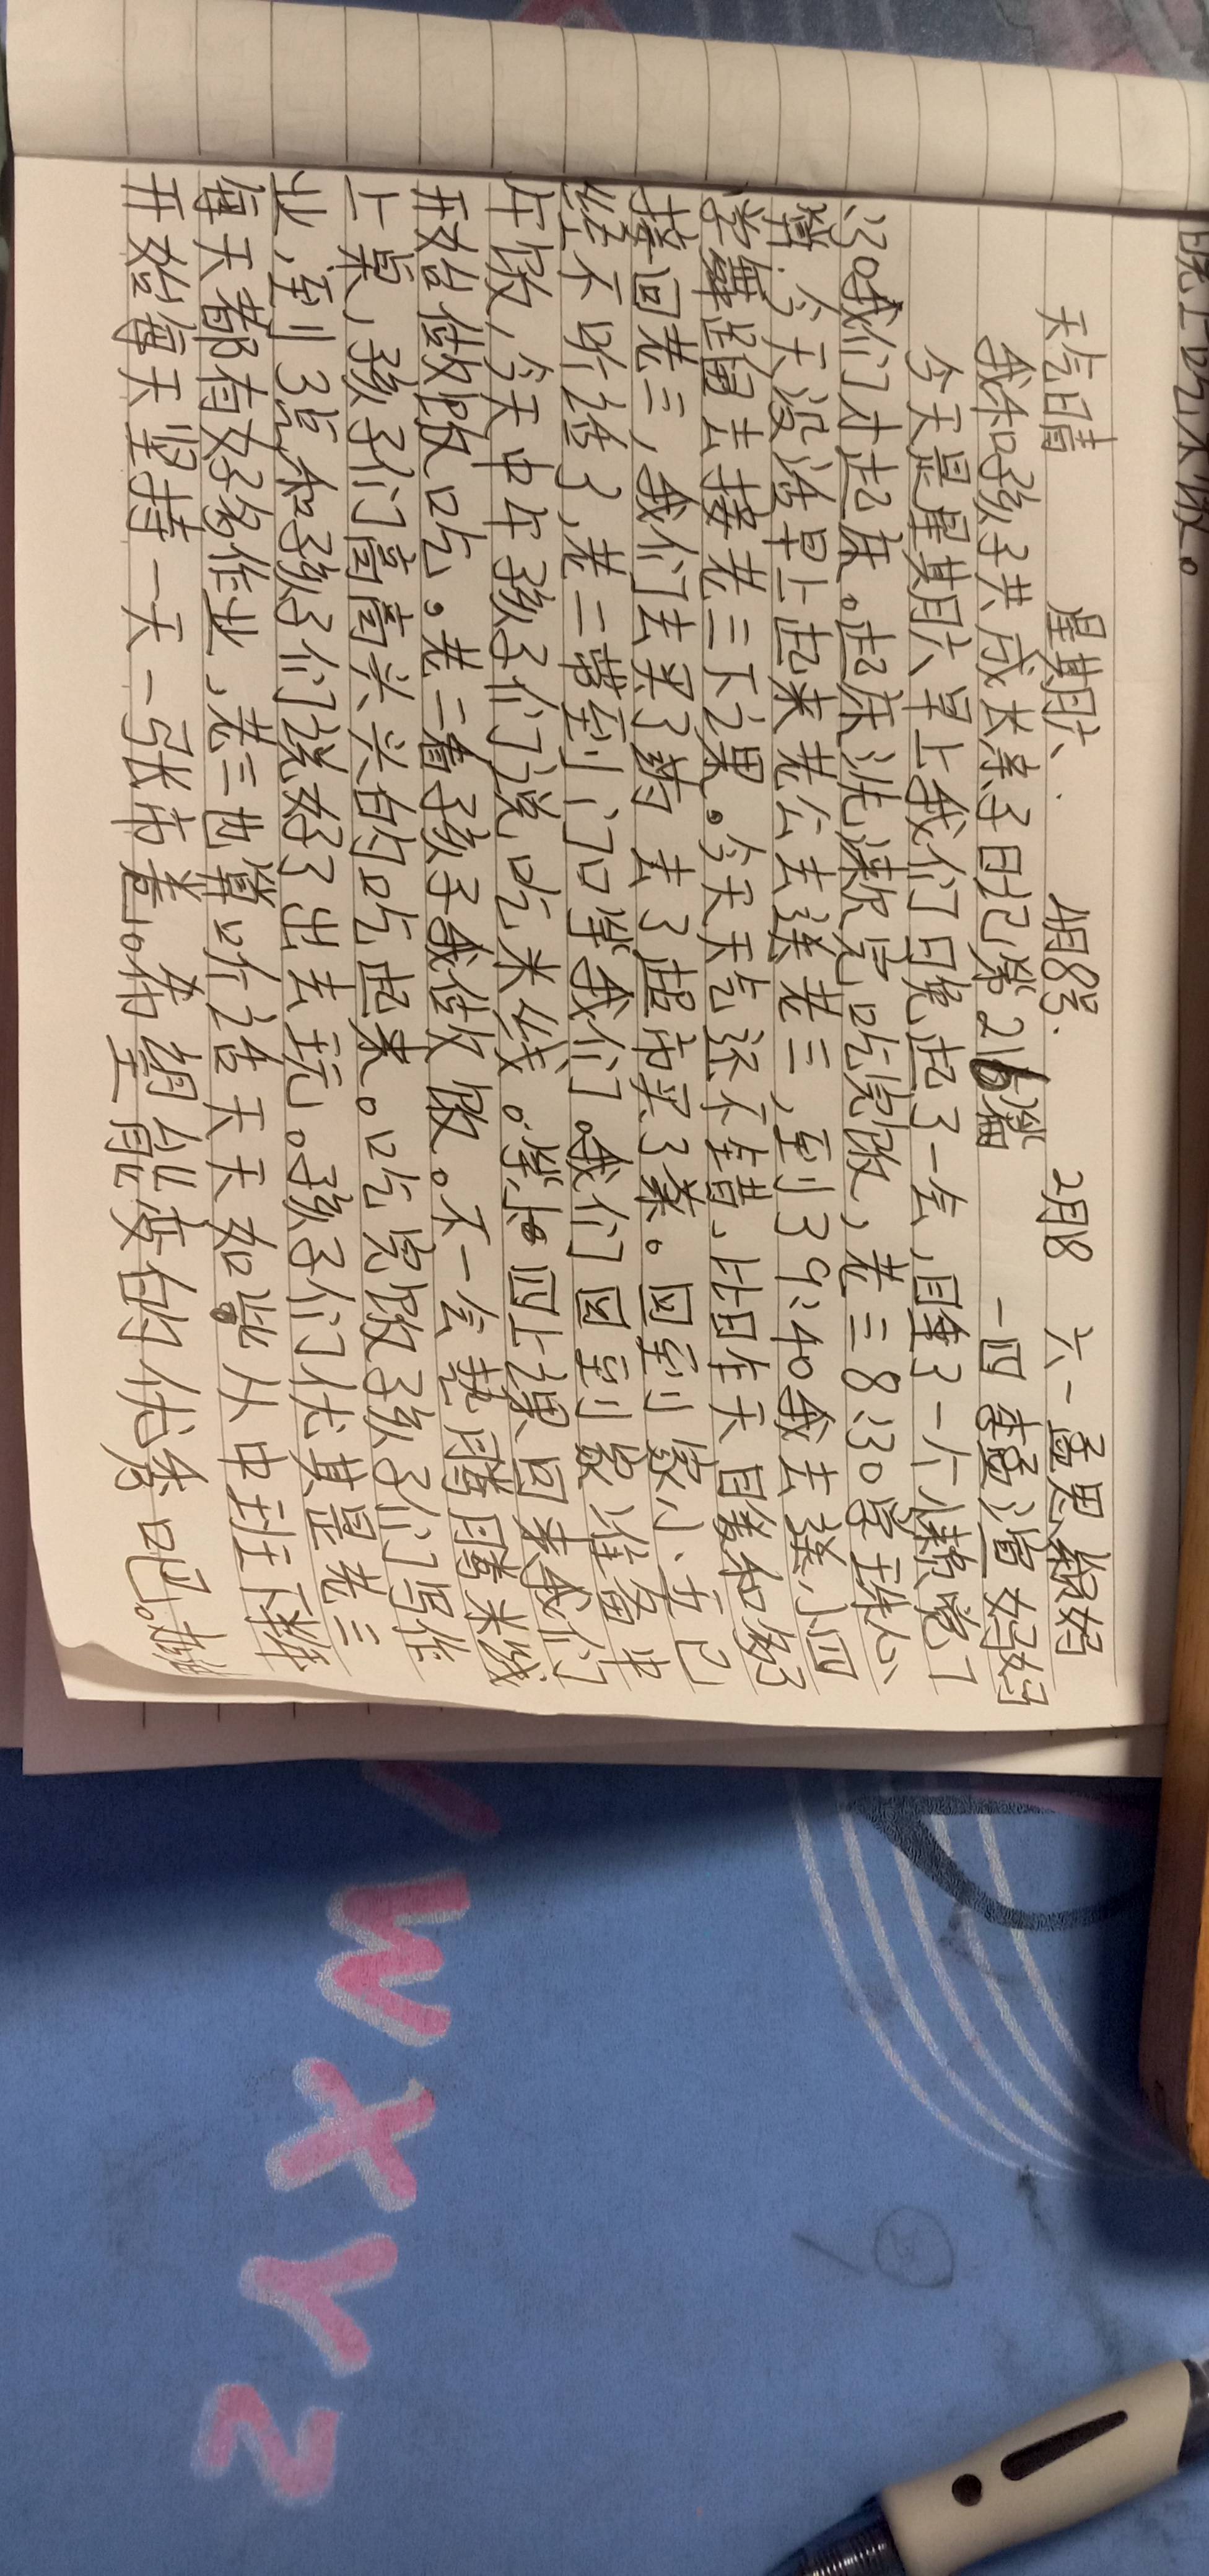 晚上吃米饭。
天气晴 星期六. 4月8号. 2月18 六一孟思缘妈
我和孩子共成长亲子日记第216篇 一四 李孟潼妈妈
今天是星期六早上我们可晚起了一会,睡了一个懒觉7
:30我们才起床。起床洗漱完吃完饭,老三8:30学珠心
算.今天没活早上起来老公去送老三,到了9:40我去送小四
学舞蹈去接老三下课。今天天气还不错.比昨天暖和好
接回老三,我们去买了药 去了超市买了菜。回到家小五已
经不听话了,老二带到门口等我们。我们回到家准备中
午饭,今天中午孩子们说吃米线。等小四上课回来我们
开始做饭吃。老二看孩子我做饭。不一会热腾腾米线
上桌,孩子们高高兴兴的吃起来。吃完饭孩子们写作
业,到了3点和孩子们说好了出去玩。孩子们尤其是老三
每天都有好多作业,老三也算听话天天如此从中班下学
开始每天坚持一天一张布置。希望能变的优秀吧。
W
X
Y
Z